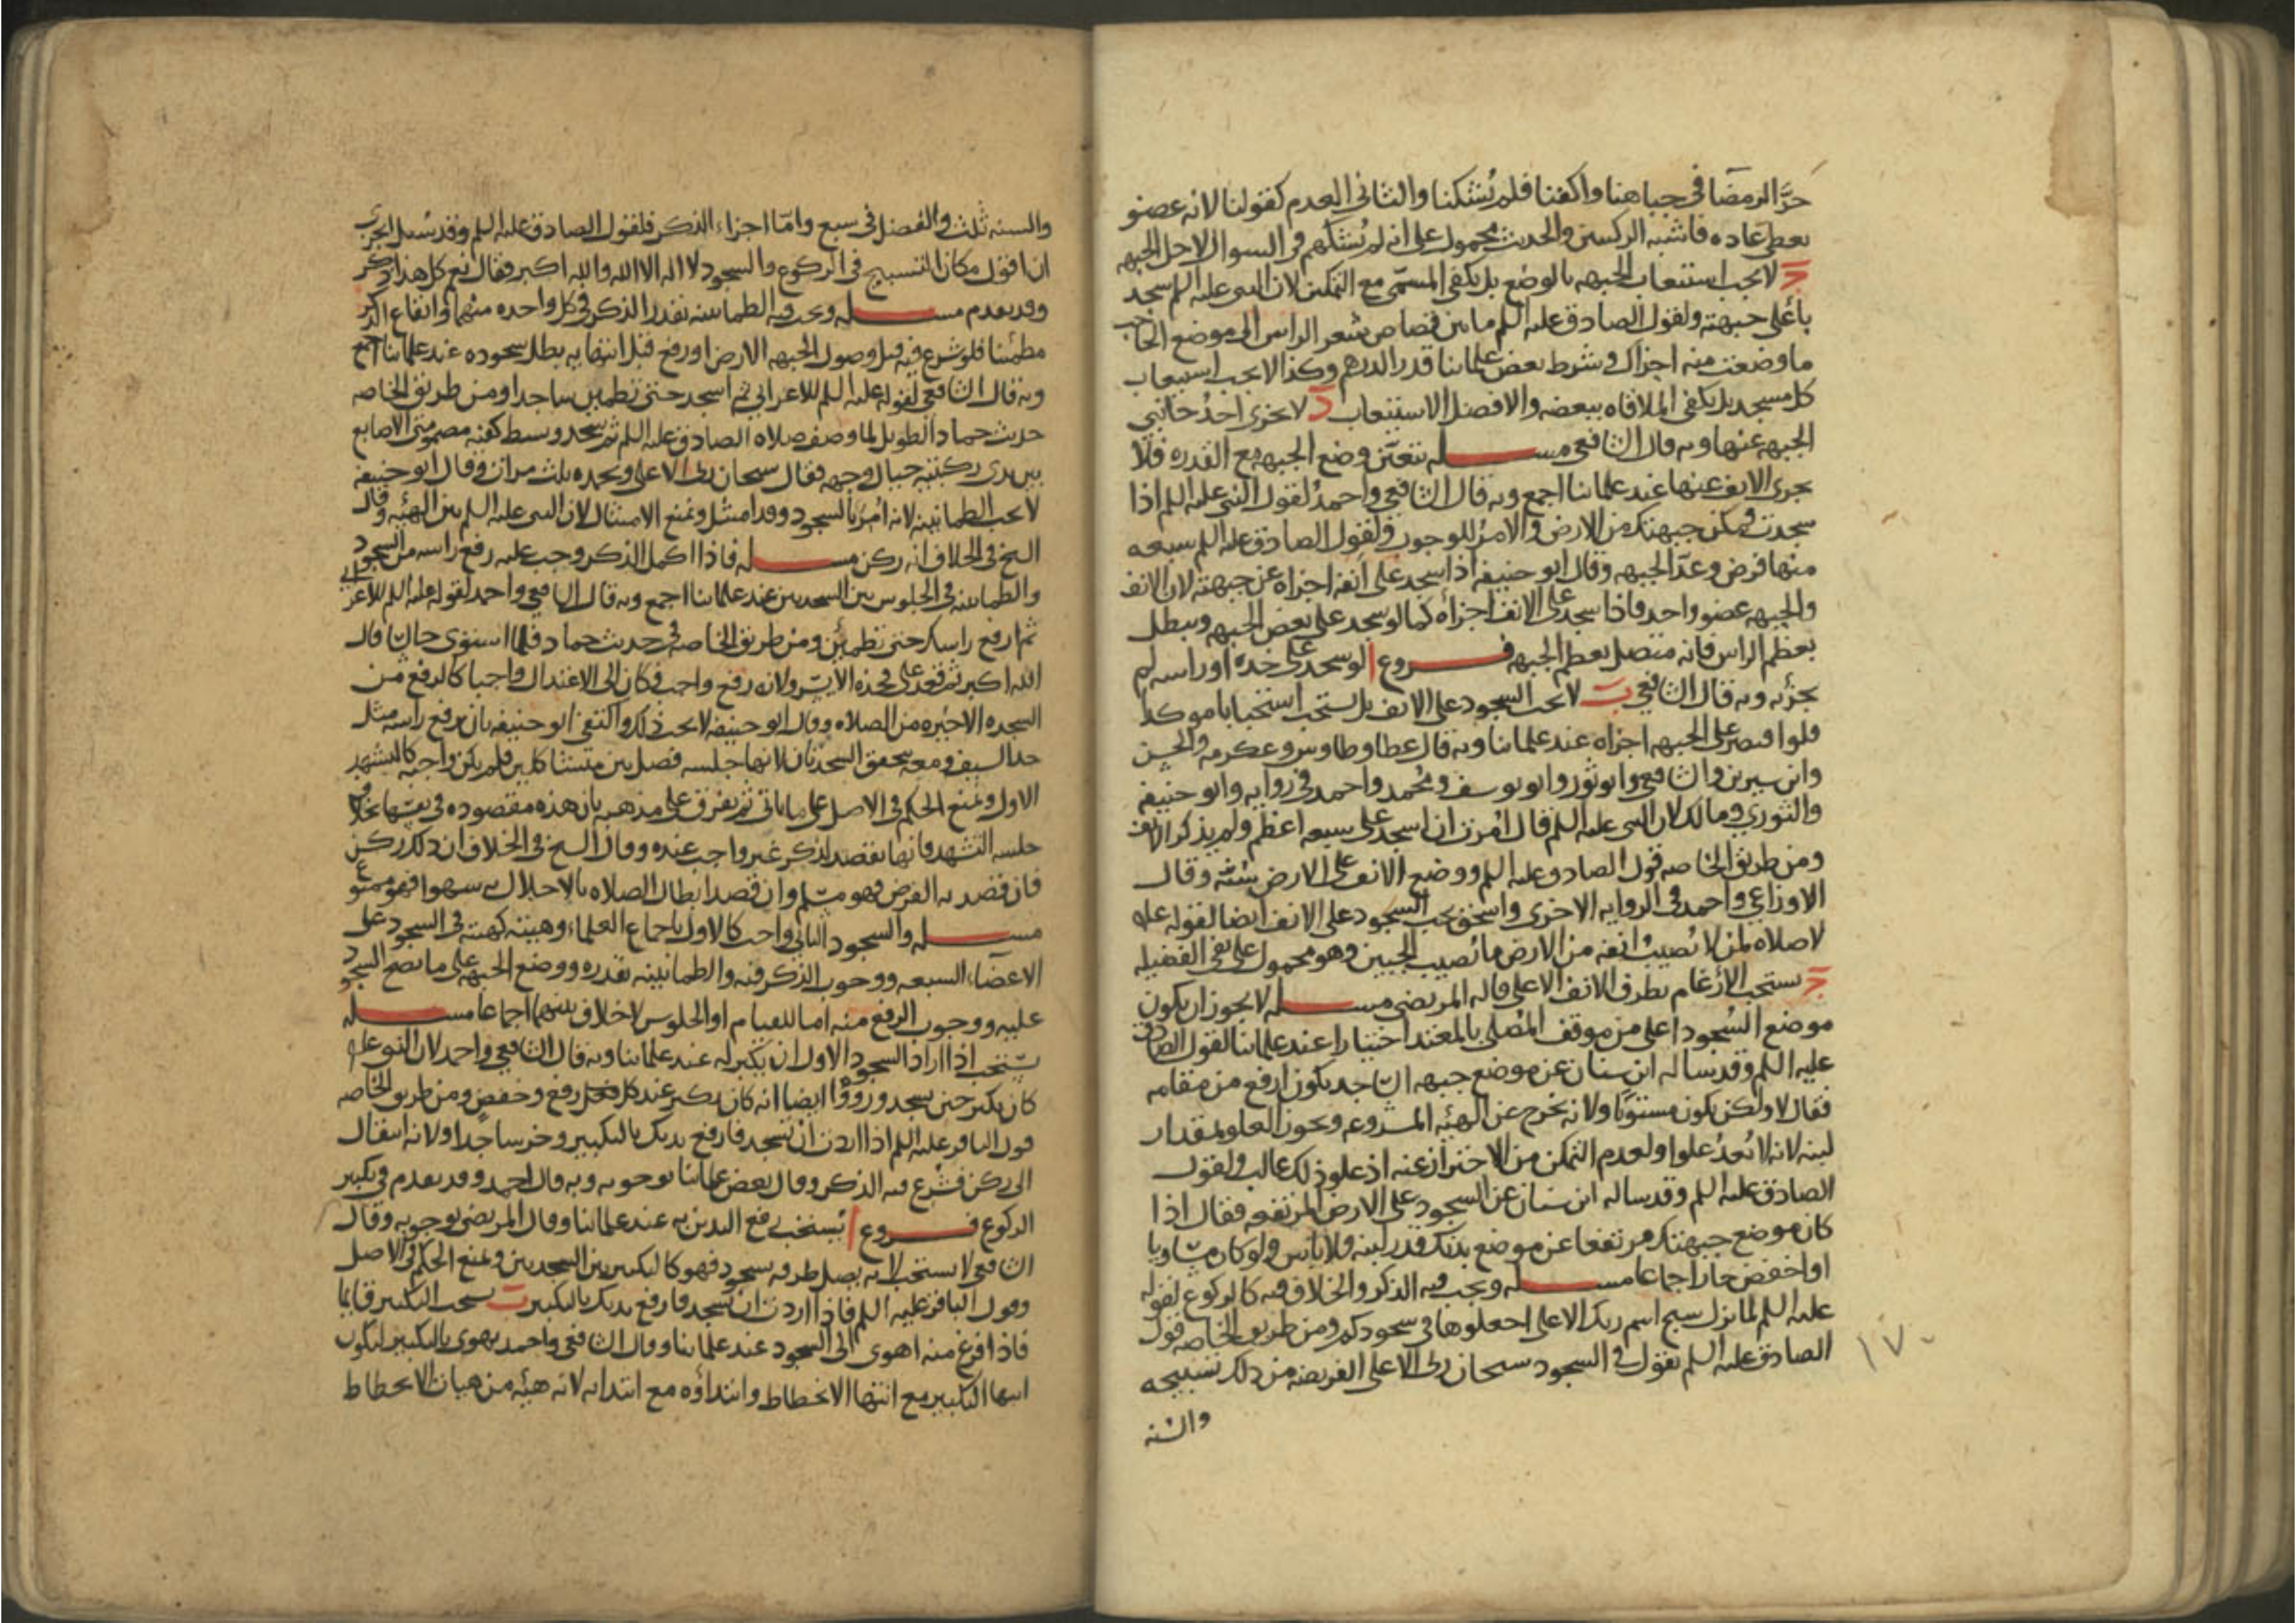 حرَّ الرمضا في جباهنا واكفنا فلم يُشكنا والثاني العدم كقولنا لانه عضو
يعطي عاده فاشبه الركبتين والحديث محمول على انه لم يُشكهم في السوال لاجل الجبهه
ج لا يجب استيعاب الجبهه بالوضع بل يكفي المسمّى مع التمكين لان النبي عليه السلم سجد
بأعلى جبهته ولقول الصادق عليه السلم ما بين قصاص شعر الراس الى موضع الحاجب
ما وضعت منه اجزاك وشرط بعض علمائنا قدر الدرهم وكذا لا يجب استيعاب
كل مسجد بل يكفي الملاقاه ببعضه والافضل الاستيعاب د لا يجزى احدُ جانبي
الجبهه عنها وبه قال الشافعي مسله يتعيّن وضع الجبهه مع القدره فلا
يجزى الانف عنها عند علمائنا اجمع وبه قال الشافعي واحمدُ لقول النبي عليه السلم اذا
سجدت فمكن جبهتك من الارض والامرُ للوجوب ولقول الصادق عليه السلم سبعه
منها فرض وعدّ الجبهه وقال ابو حنيفه اذا سجد على انفه اجزاه عن جبهته لان الانف
والجبهه عضو واحد فاذا سجد على الانف اجزأه كما لو سجد على بعض الجبهه ويبطل
بعظم الراس فانه متصل بعظم الجبهه فروع ا لو سجد على خده او راسه لم
يجزئه وبه قال الشافعي ب لا يجب السجود على الانف بل يستحب استحبابا موكدا
فلو اقتصر على الجبهه اجزاه عند علمائنا وبه قال عطا وطاوس وعكرمه والحسن
وابن سيرين والشافعي وابو ثور وابو يوسف ومُحمد واحمد في روايه وابو حنيفه
والثوري ومالك لان النبي عليه السلم قال اُمرت ان اسجد على سبعه اعظم ولم يذكر الانف
ومن طريق الخاصه قول الصادق عليه السلم ووضع الانف على الارض سُنّه وقال
الاوزاعي واحمد في الروايه الاخرى واسحق يجب السجود على الانف ايضا لقوله عليه
لا صلاه لمن لا يُصيبُ انفه من الارض ما يُصيب الجبين وهو محمول على نفي الفضيله
ج يستحب الارغام بطرف الانف الاعلى قاله المرتضى مسله لا يجوز ان يكون
موضع السُجود اعلى من موقف المُصلي بالمعتد اختيارا عند علمائنا لقول الصادق
عليه السلم وقد ساله ابن سنان عن موضع جبهه الساجد يكون ارفع من مقامه
فقال لا ولكن يكون مستويًا ولانه يخرج عن الهيئه المشروعه ويجوز العلو بمقدار
لبنه لانه لا يُعدُ علوا ولعدم التمكن من الاحتراز عنه اذ علو ذلك غالب ولقول
الصادق عليه السلم وقد ساله ابن سنان عن السجود على الارض المرتفعه فقال اذا
كان موضع جبهتك مرتفعا عن موضع يديك قدر لبنه فلا باس ولو كان مساويا
او اخفض جاز اجماعا مسله ويجب فيه الذكر والخلاف فيه كالركوع لقوله
عليه السلم لما نزل سبح اسم ربك الاعلى اجعلوها في سجودكم ومن طريق الخاصه قول
الصادق عليه السلم تقول في السجود سبحان ربي الاعلى الفريضه من ذلك تسبيحه
والسنه
١٧٠
والسنه ثلث والفضل في سبع وامّا اجزاء الذكر فلقول الصادق عليه السلم وقد سُئل ايجزى
ان اقول مكان التسبيح في الركوع والسجود لا اله الا الله والله اكبر فقال نعم كل هذا ذكر
وقد تقدم مسله ويجب فيه الطمانينه بقدر الذكر في كل واحده منهما وايقاع الذكر
مطمئنا فلو شرع فيه قبل وصول الجبهه الارض او رفع قبل انتهايه بطل سجوده عند علمائنا اجمع
وبه قال الشافعي لقوله عليه السلم للاعرابي ثم اسجد حتى تطمين ساجدا ومن طريق الخاصه
حديث حماد الطويل لما وصف صلاه الصادق عليه السلم ثم سجد وبسط كفيه مضمومتى الاصابع
بين يدى ركبتيه حيال وجهه فقال سبحان ربي الاعلى وبحمده ثلث مرات وقال ابو حنيفه
لا يجب الطمانينه لانه اُمرَ بالسجود وقد امتثل ونمنع الامتثال لان النبي عليه السلم بين الهيئه وقال
الشيخ في الخلاف انه ركن مسله فاذا اكمل الذكر وجب عليه رفع راسه من السجود
والطمانينه في الجلوس بين السجدتين عند علمائنا اجمع وبه قال الشافعي واحمد لقوله عليه السلم للاعرابي
ثم ارفع راسك حتى تطمئن ومن طريق الخاصه في حديث حماد فلما استوى جالسا قال
الله اكبر ثم قعد على فخذه الايسر ولانه رفع واجب فكان الى الاعتدال واجبا كالرفع من
السجده الاخيره من الصلاه وقال ابو حنيفه لا يجب ذلك واكتفى ابو حنيفه بان يرفع راسه مثل
حد السيف ومعه يتحقق السجدتان لانها جلسه فصل بين متشاكلين فلم يكن واجبه كالتشهد
الاول ونمنع الحكم في الاصل على ما ياتي ثم يفرق على مذهبه بان هذه مقصوده في نفسها بخلاف
جلسه التشهد فانها تقصد لذكر غير واجب عنده وقال الشيخ في الخلاف ان ذلك ركن
فان قصد به الفرض فهو مسلم وان قصد ابطال الصلاه بالاخلال به سهوا فهو ممنوع
مسله والسجود الثاني واجب كالاول باجماع العلماء وهيئته كهيئته في السجود على
الاعضاء السبعه ووجوب الذكر فيه والطمانينه بقدره ووضع الجبهه على ما يصح السجود
عليه ووجوب الرفع منه اما للقيام او الجلوس لا خلاف بينهما اجماعا مسله
يستحب اذا اراد السجود الاول ان يكبر له عند علمائنا وبه قال الشافعي واحمد لان النبي عليه
كان يكبر حين يسجد ورووا ايضا انه كان يكبر عند كل رفع وخفض ومن طريق الخاصه
قول الباقر عليه السلم اذا اردت ان تسجد فارفع يديك بالتكبير وخر ساجدا ولانه انتقال
الى ركن فشرع فيه الذكر وقال بعض علمائنا بوجوبه وبه قال احمد وقد تقدم في تكبير
الركوع فروع ا يُستحب رفع اليدين به عند علمائنا وقال المرتضى بوجوبه وقال
الشافعي لا يستحب لانه يصل طرفه بسجود فهو كالتكبير بين السجدتين ونمنع الحكم في الاصل
وقول الباقر عليه السلم فاذا اردت ان تسجد فارفع يديك بالتكبير ب يستحب التكبير قايما
فاذا فرغ منه اهوى الى السجود عند علمائنا وقال الشافعي واحمد يهوى بالتكبير ليكون
انتها التكبير مع انتها الانحطاط وابتداؤه مع ابتدايه لانه هيئه من هيات الانحطاط